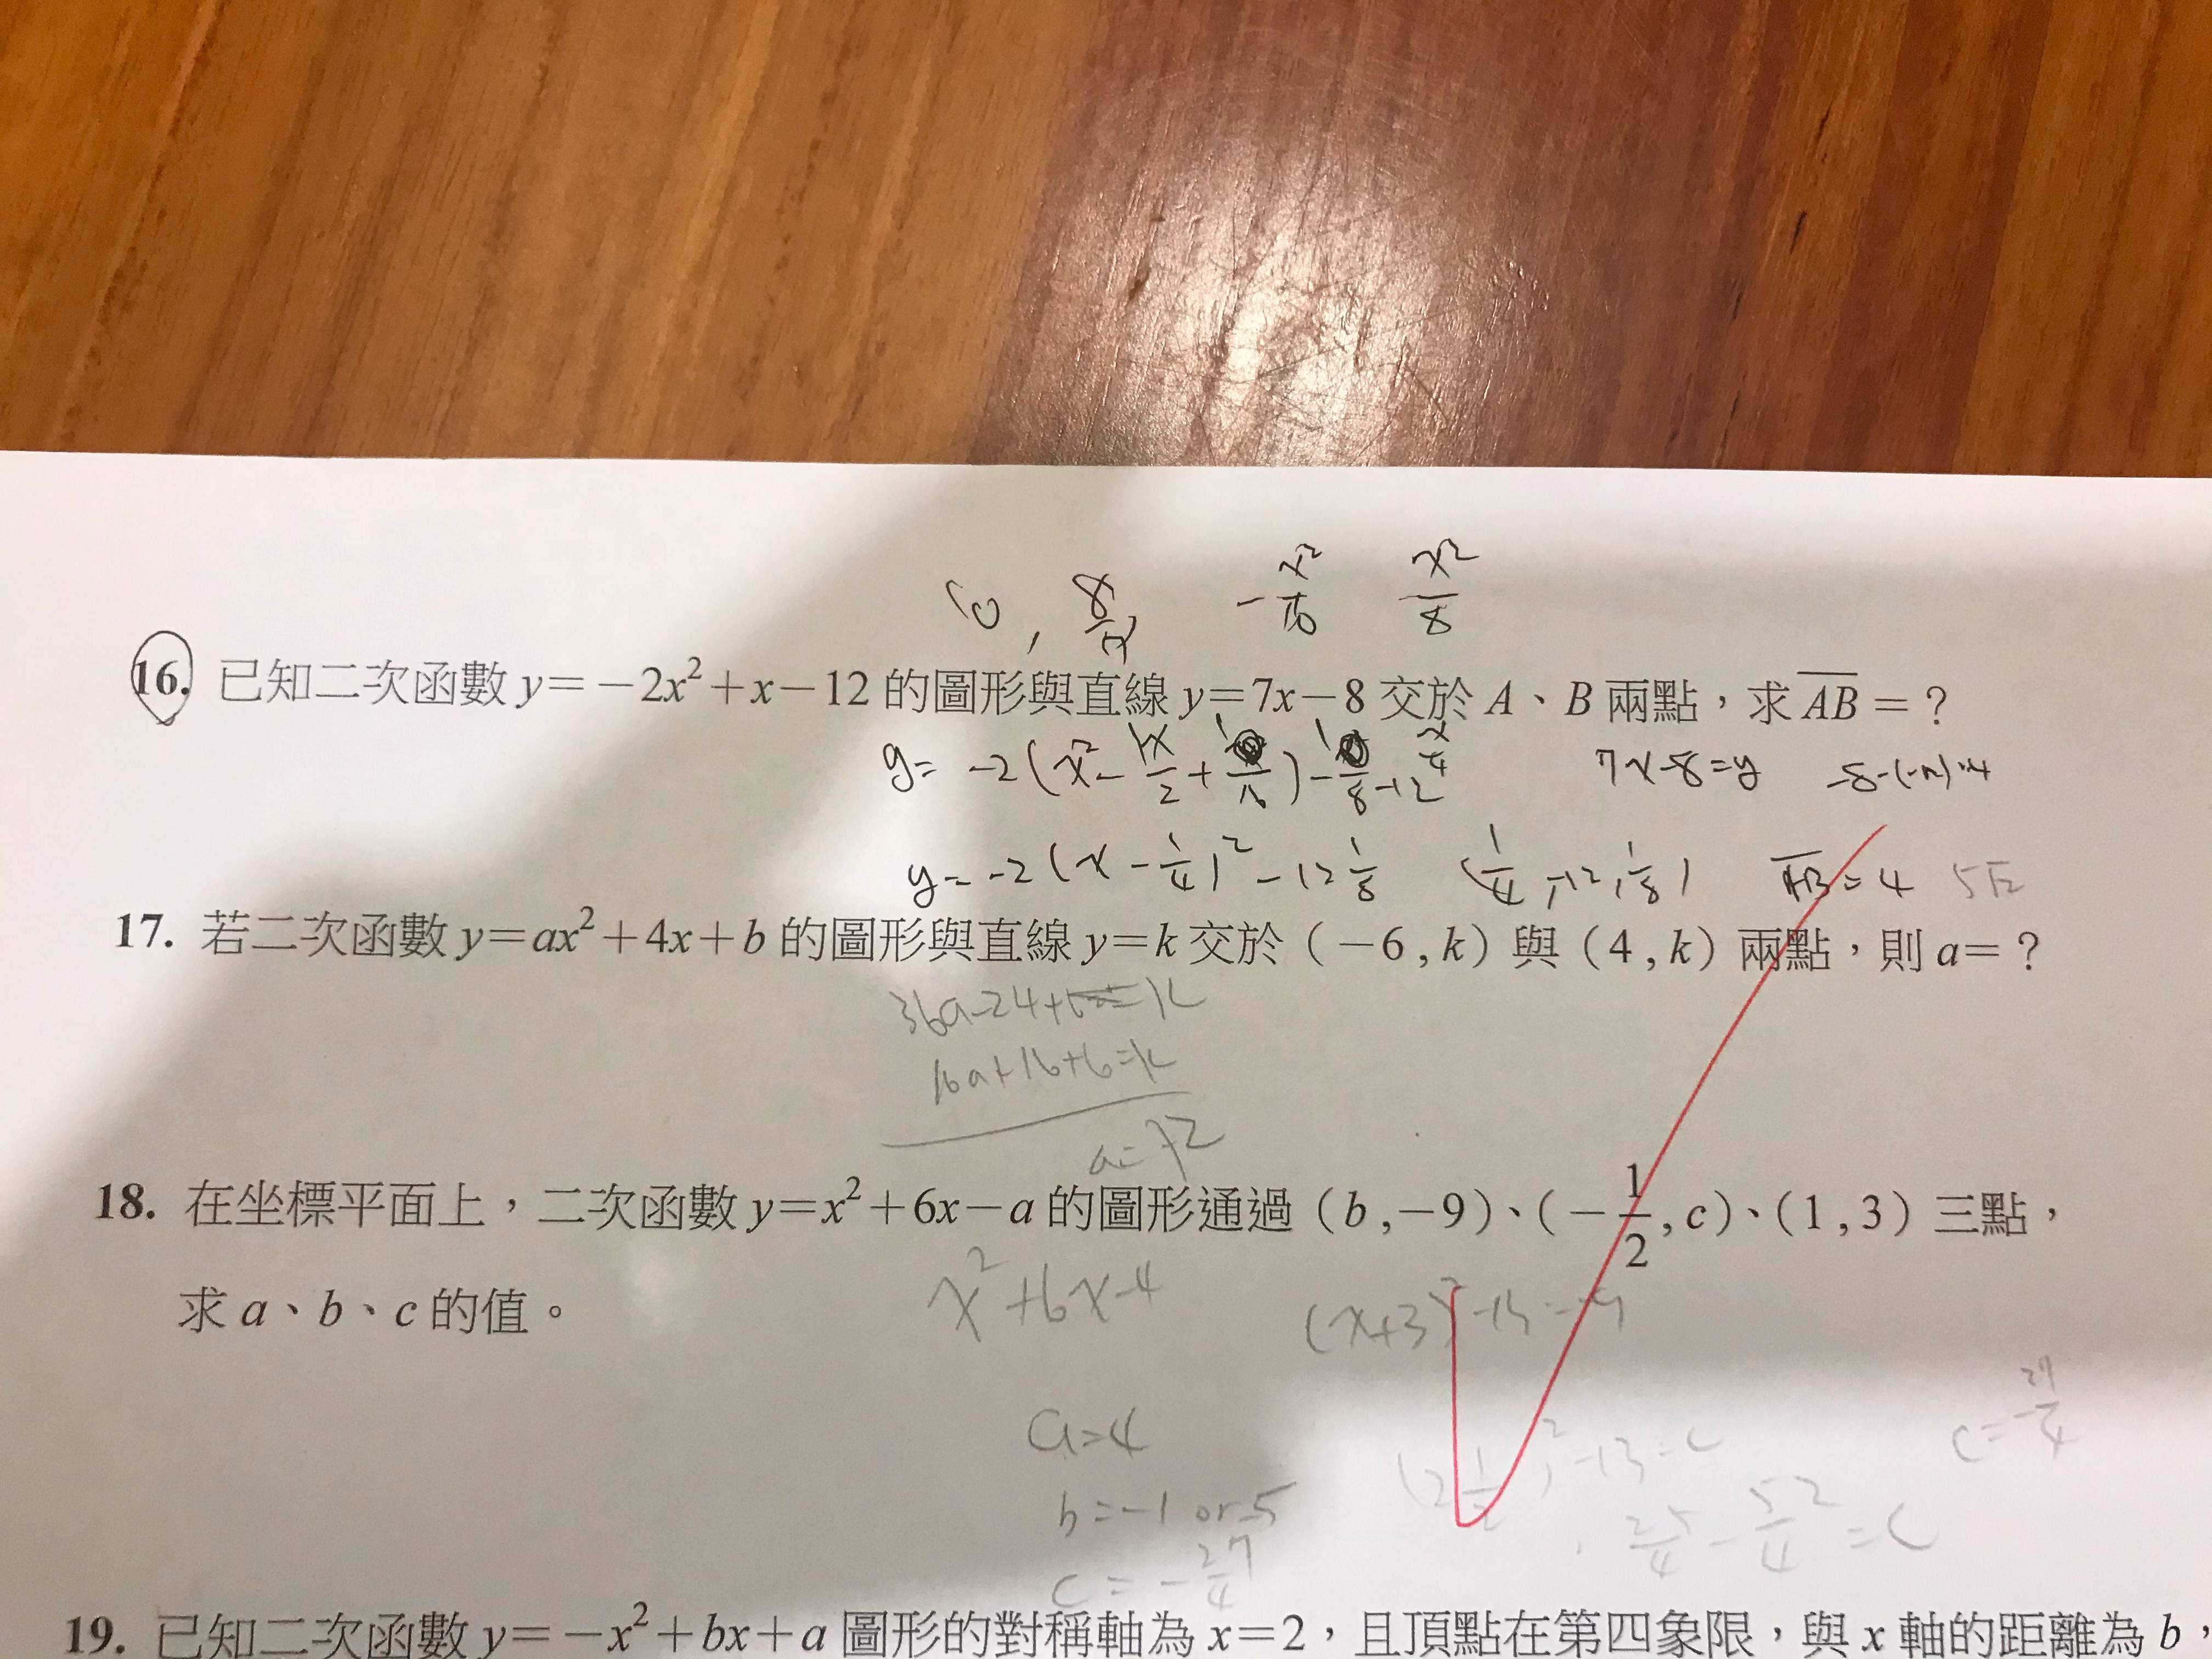 10 , 8/7 -x²/16 x²/8
16. 已知二次函數 y=-2x²+x-12 的圖形與直線 y=7x-8 交於 A、B 兩點，求 AB = ?
7x-8=y
y=-2(x-1/4)²-12 1/8 AB=4 5√2
17. 若二次函數 y=ax²+4x+b 的圖形與直線 y=k 交於（-6 , k）與（4 , k）兩點，則 a= ?
16a+16+b=k
18. 在坐標平面上，二次函數 y=x²+6x-a 的圖形通過（b ,-9）、（-1/2 , c）、（1 , 3）三點，
求 a、b、c 的值。
x²+6x-4 (x+3)²-13=-9
a=4
(2 1/2)²-13=c
c=-27/4
b=-1 or -5
25/4-52/4=c
c=-27/4
19. 已知二次函數 y=-x²+bx+a 圖形的對稱軸為 x=2，且頂點在第四象限，與 x 軸的距離為 b，